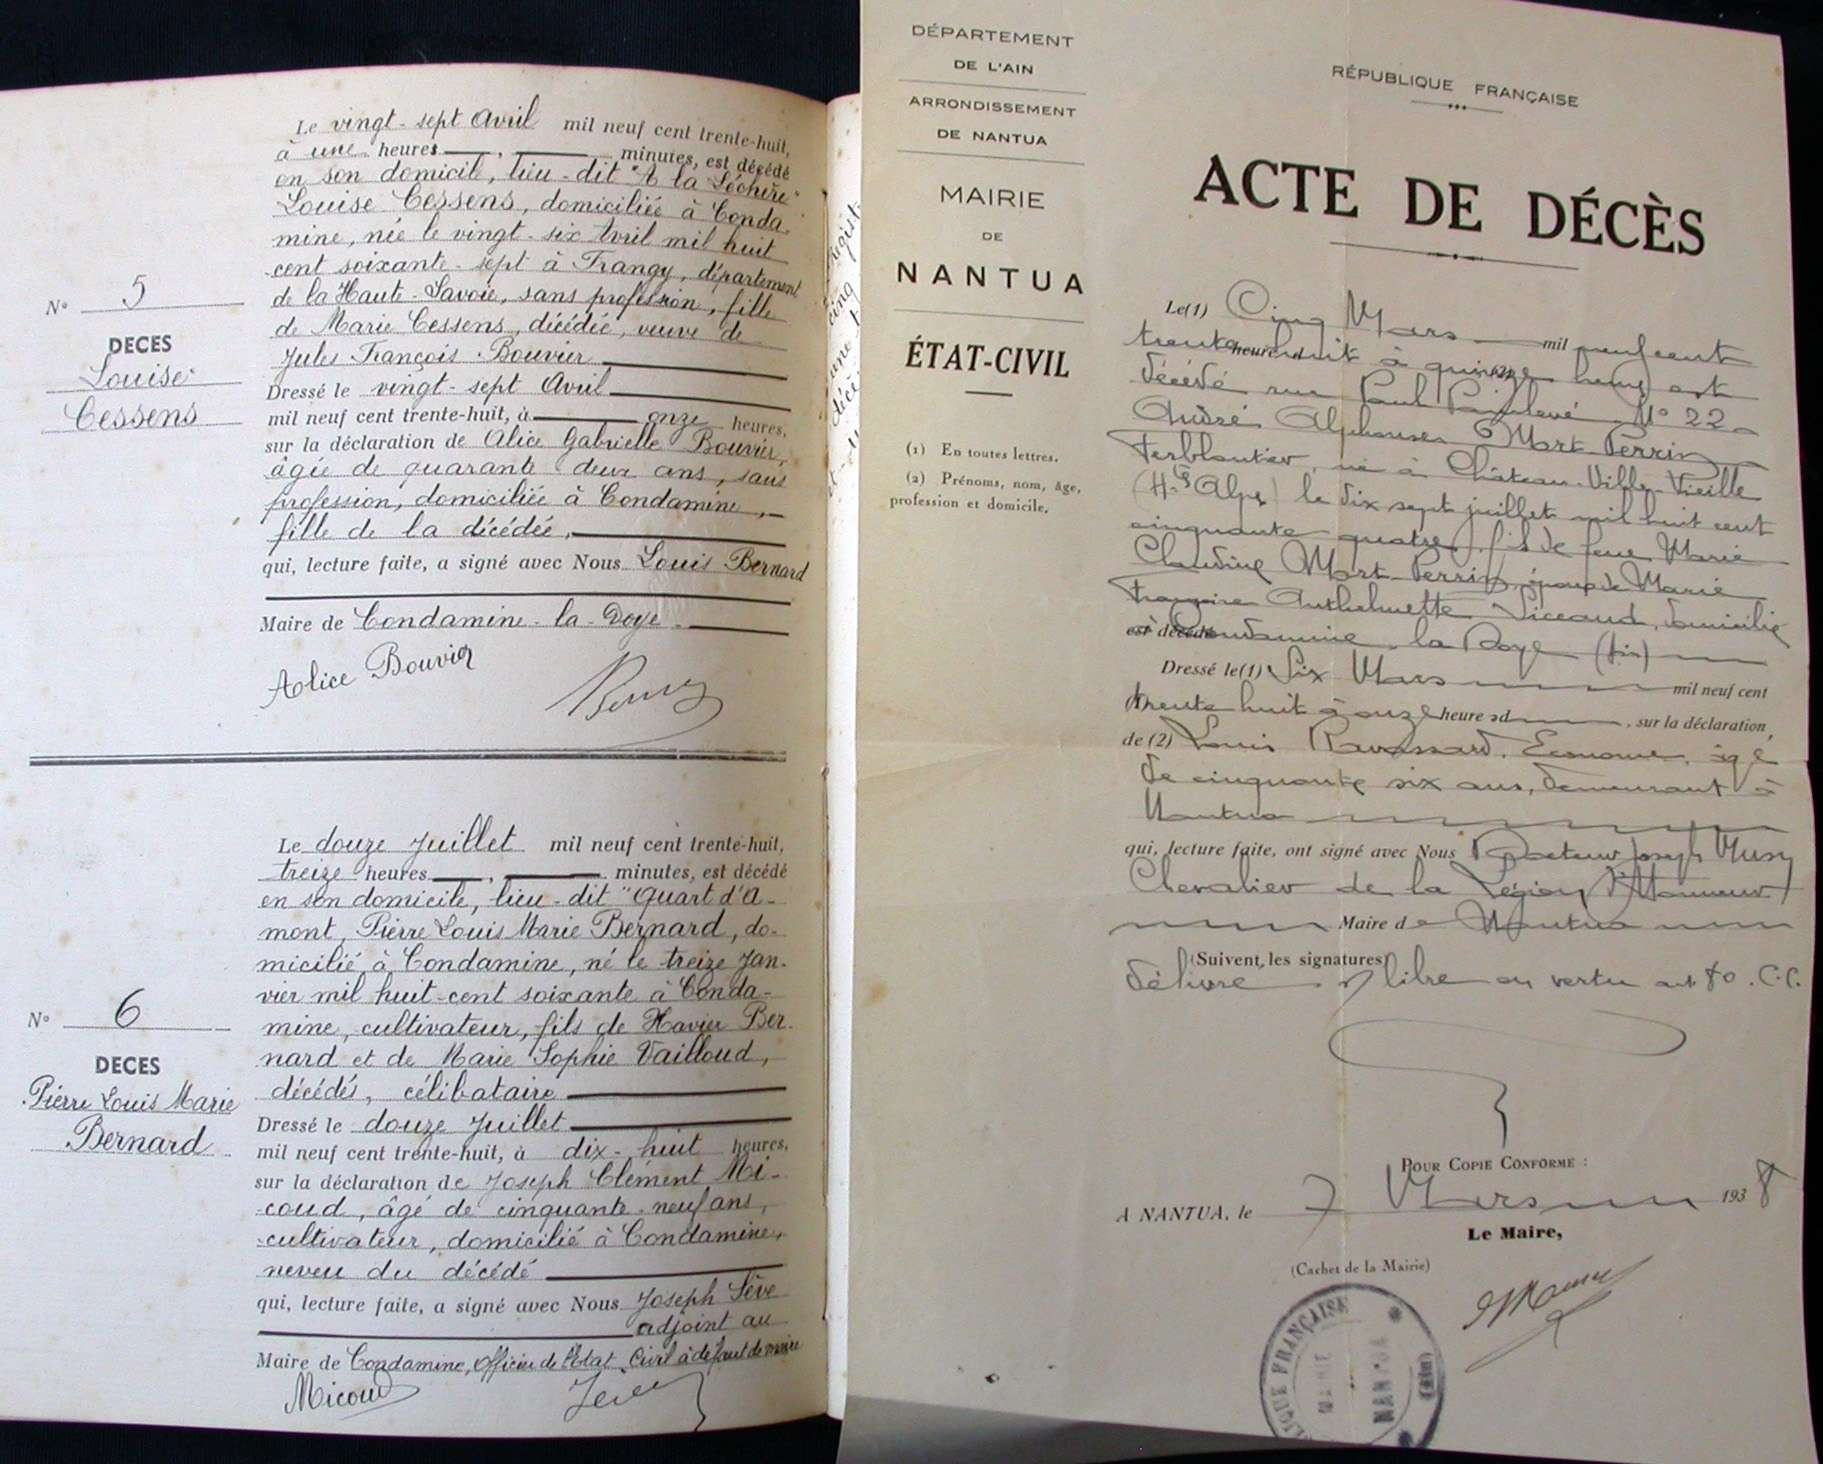 Le vingt-sept Avril mil neuf cent trente-huit,
à une heures, minutes, est décédé
en son domicil, lieu-dit "A la Léchère"
Louise Cessens, domiciliée à Conda-
mine, née le vingt-six Avril mil huit
cent soixante-sept à Frangy, département
de la Haute-Savoie, sans profession, fille
de Marie Cessens, décédée, veuve de
Jules François Bouvier
N° 5
DECES
Louise
Cessens
Dressé le vingt-sept Avril
mil neuf cent trente-huit, à onze heures,
sur la déclaration de Alice Gabrielle Bouvier,
âgée de quarante deux ans, sans
profession, domiciliée à Condamine,
fille de la décédée,
qui, lecture faite, a signé avec Nous Louis Bernard
Maire de Condamine-la-Doye
Alice Bouvier
Le douze Juillet mil neuf cent trente-huit,
treize heures, minutes, est décédé
en son domicile, lieu-dit "Quart d'a-
mont, Pierre Louis Marie Bernard, do-
micilié à Condamine, né le treize Jan-
vier mil huit-cent soixante à Conda-
mine, cultivateur, fils de Xavier Ber-
nard et de Marie Sophie Vailloud,
décédés, célibataire
N° 6
DECES
Pierre Louis Marie
Bernard
Dressé le douze Juillet
mil neuf cent trente-huit, à dix-huit heures,
sur la déclaration de Joseph Clément Mi-
coud, âgé de cinquante-neuf ans,
cultivateur, domicilié à Condamine,
neveu du décédé
qui, lecture faite, a signé avec Nous Joseph Sève
adjoint au
Maire de Condamine, officier de l'Etat Civil à défaut de maire
Micoud
DÉPARTEMENT
DE L'AIN
ARRONDISSEMENT
DE NANTUA
MAIRIE
DE
NANTUA
ÉTAT-CIVIL
(1) En toutes lettres.
(2) Prénoms, nom, âge,
profession et domicile.
RÉPUBLIQUE FRANÇAISE
ACTE DE DÉCÈS
Le(1) Cinq Mars mil neuf cent
trente huit à quinze heures est
décédé rue Paul Painlevé N° 22
André Alphonse Mort-Perrin
Ferblantier, né à Château-Ville-Vieille
(Htes Alpes) le dix sept juillet mil huit cent
cinquante quatre, fils de feue Marie
Claudine Mort-Perrin, époux de Marie
Françoise Anthelmette, domicilié
à Condamine la Doye (Ain)
est décédé
Dressé le(1) Six Mars mil neuf cent
trente huit à onze heure sd, sur la déclaration,
de (2) Louis Ravassard, Econome, âgé
de cinquante six ans, demeurant à
Nantua
qui, lecture faite, ont signé avec Nous Docteur Joseph
Chevalier de la Légion d'Honneur
Maire de Nantua
(Suivent les signatures)
délivré s/ libre en vertu art 80. C.C.
POUR COPIE CONFORME :
A NANTUA, le 7 Mars 1938
Le Maire,
(Cachet de la Mairie)
FRANÇAISE
MAIRIE
NANTUA
(Ain)